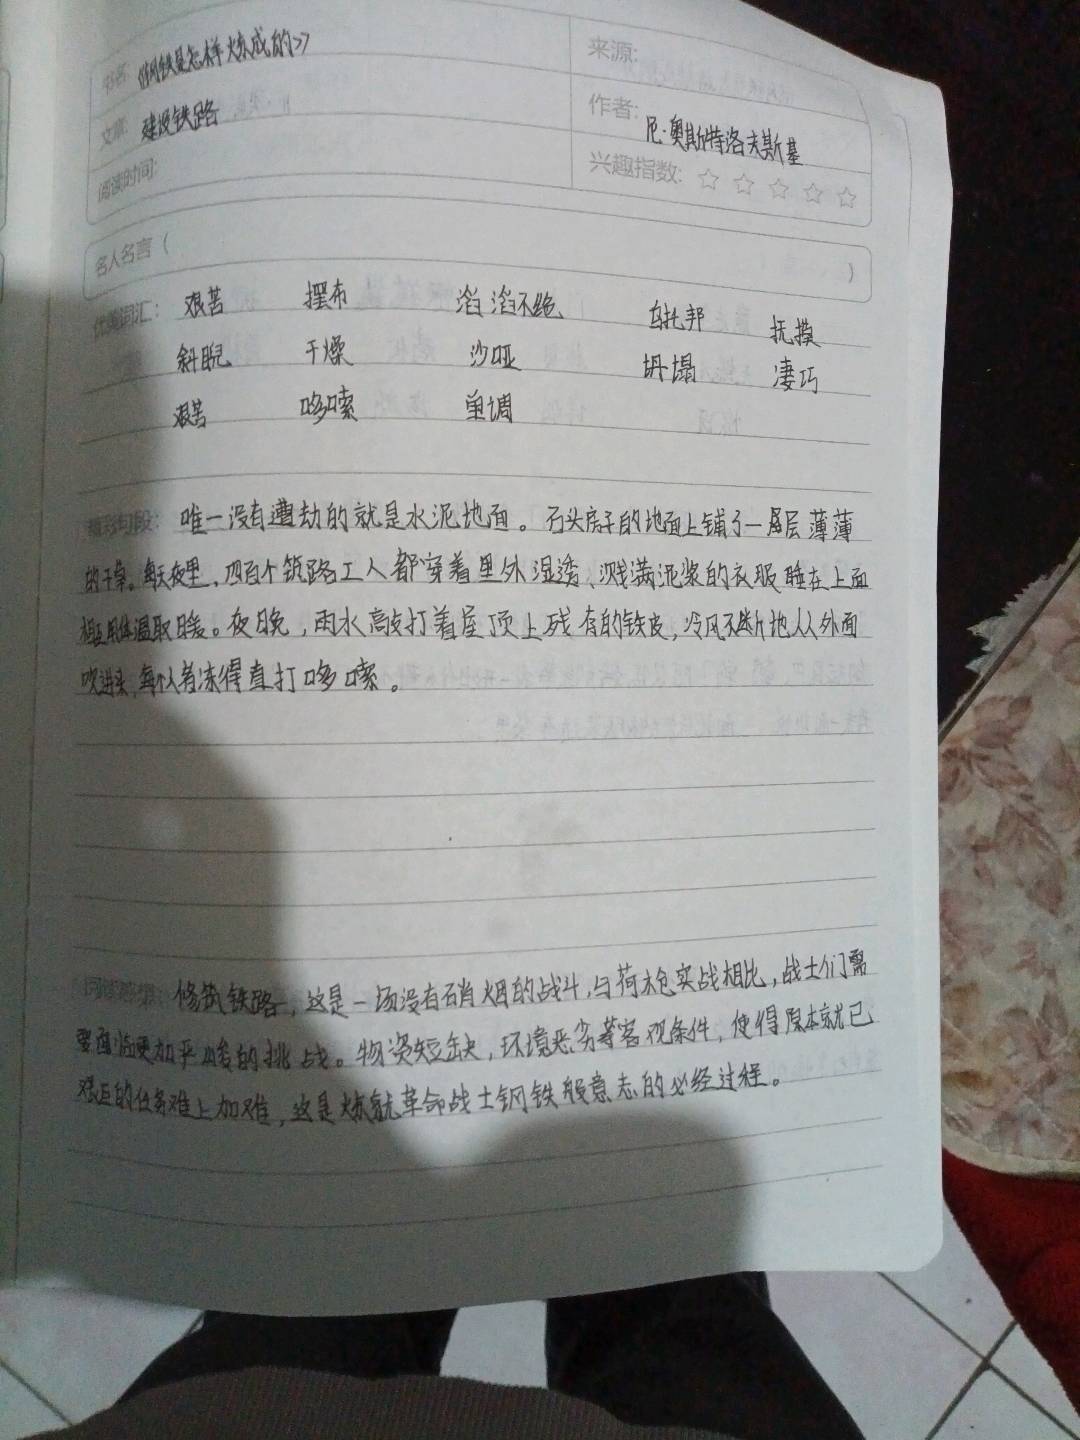 书名: 《钢铁是怎样炼成的》
来源:
文章: 建设铁路
作者: 尼·奥斯特洛夫斯基
阅读时间:
兴趣指数: ☆ ☆ ☆ ☆ ☆
名人名言 ( )
优美词汇: 艰苦 摆布 滔滔不绝 乌托邦 抚摸
斜睨 干燥 沙哑 坍塌 凄巧
艰苦 哆嗦 单调
精彩句段: 唯一没有遭劫的就是水泥地面。石头房子的地面上铺了一层薄薄
的干草。每天夜里,四百个筑路工人都穿着里外湿透、溅满泥浆的衣服睡在上面
相互用体温取暖。夜晚,雨水敲打着屋顶上残存的铁皮,冷风不断地从外面
吹进来,每个人都冻得直打哆嗦。
阅读感想: 修筑铁路,这是一场没有硝烟的战斗,与荷枪实战相比,战士们需
要面临更加严峻的挑战。物资短缺,环境恶劣等客观条件,使得原本就已
艰巨的任务难上加难,这是炼就革命战士钢铁般意志的必经过程。